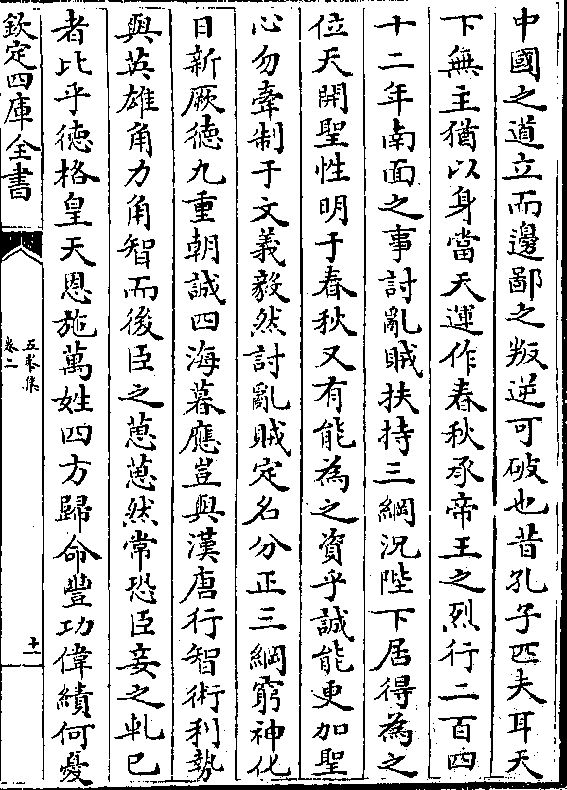 中國之道立而邊鄙之叛逆可破也昔孔子匹夫耳天
下無主猶以身當天運作春秋承帝王之烈行二百四
十二年南面之事討亂賊扶持三綱況陛下居得為之
位天開聖性明于春秋又有能為之資乎誠能更加聖
心勿牽制于文義毅然討亂賊定名分正三綱窮神化
日新厥德九重朝誠四海暮應豈與漢唐行智術利勢
與英雄角力角智而後臣之葸葸然常恐臣妾之軋已
者比乎德格皇天恩施萬姓四方歸命豐功偉績何憂
欽定四庫全書
五峯集
卷二
十